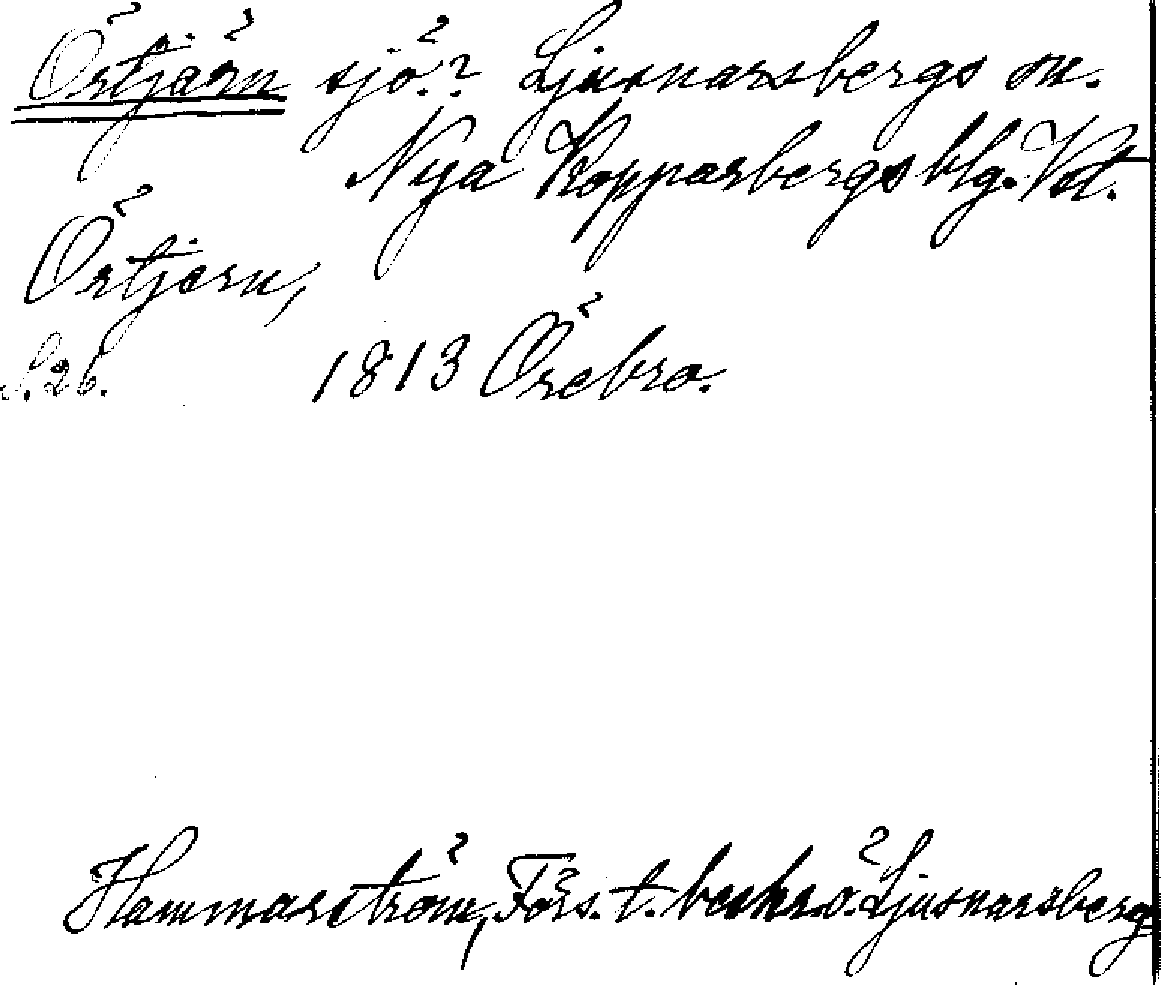 Örtjärn sjö?? Ljusnarsbergs sn.
Nya Kopparbergs blg. Vstm.
Örtjern,
S. 26. 1813 Örebro.
Hammarström, Förs. t. beskr. ö. Ljusnarsberg